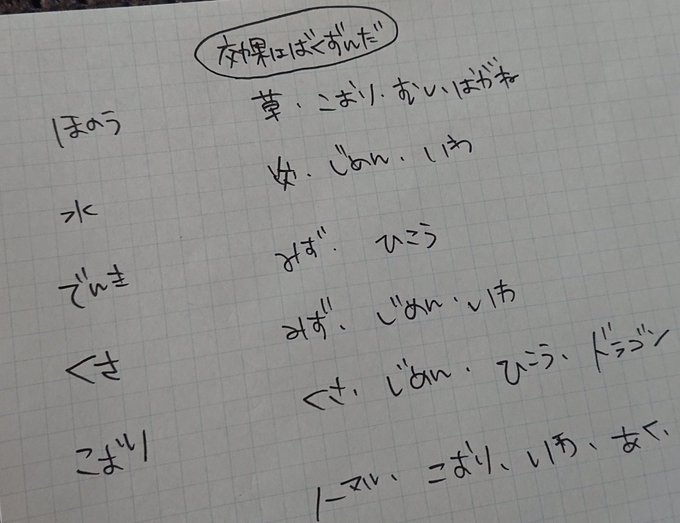 効果はばくずんだ
ほのう 草・こおり・むし・はがね
水 炎・じめん・いわ
でんき みず・ひこう
くさ みず・じめん・いわ
こおり くさ・じめん・ひこう・ドラゴン
ノーマル、こおり、いわ、あく、